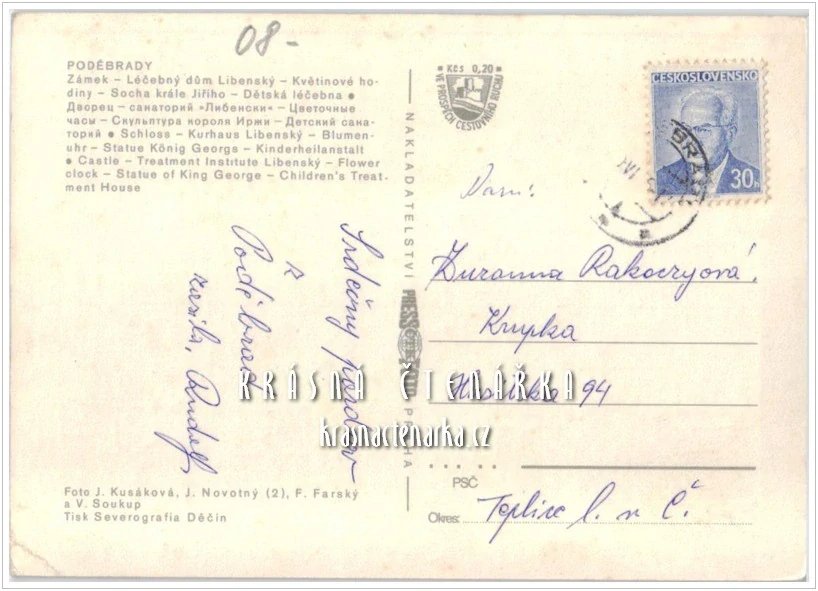 08-
PODĚBRADY
Zámek – Léčebný dům Libenský – Květinové ho-
diny – Socha krále Jiřího – Dětská léčebna ●
Дворец – санаторий «Либенски» – Цветочные
часы – Скульптура короля Иржи – Детский сана-
торий ● Schloss – Kurhaus Libenský – Blumen-
uhr – Statue König Georgs – Kinderheilanstalt
● Castle – Treatment Institute Libenský – Flower
clock – Statue of King George – Children's Treat-
ment House
Srdečný pozdrav
z
Poděbrad
Rudolf
Foto J. Kusáková, J. Novotný (2), F. Farský
a V. Soukup
Tisk Severografia Děčín
NAKLADATELSTVÍ PRAHA
Kčs 0,20
VE PROSPĚCH CESTOVNÍHO RUCHU
ČESKOSLOVENSKO
30h
Paní:
Zuzanna Rakoczyová.
Krupka
94
PSČ
Okres: Teplice l. n Č.
KRÁSNÁ ČTENÁŘKA
krasnactenarka.cz